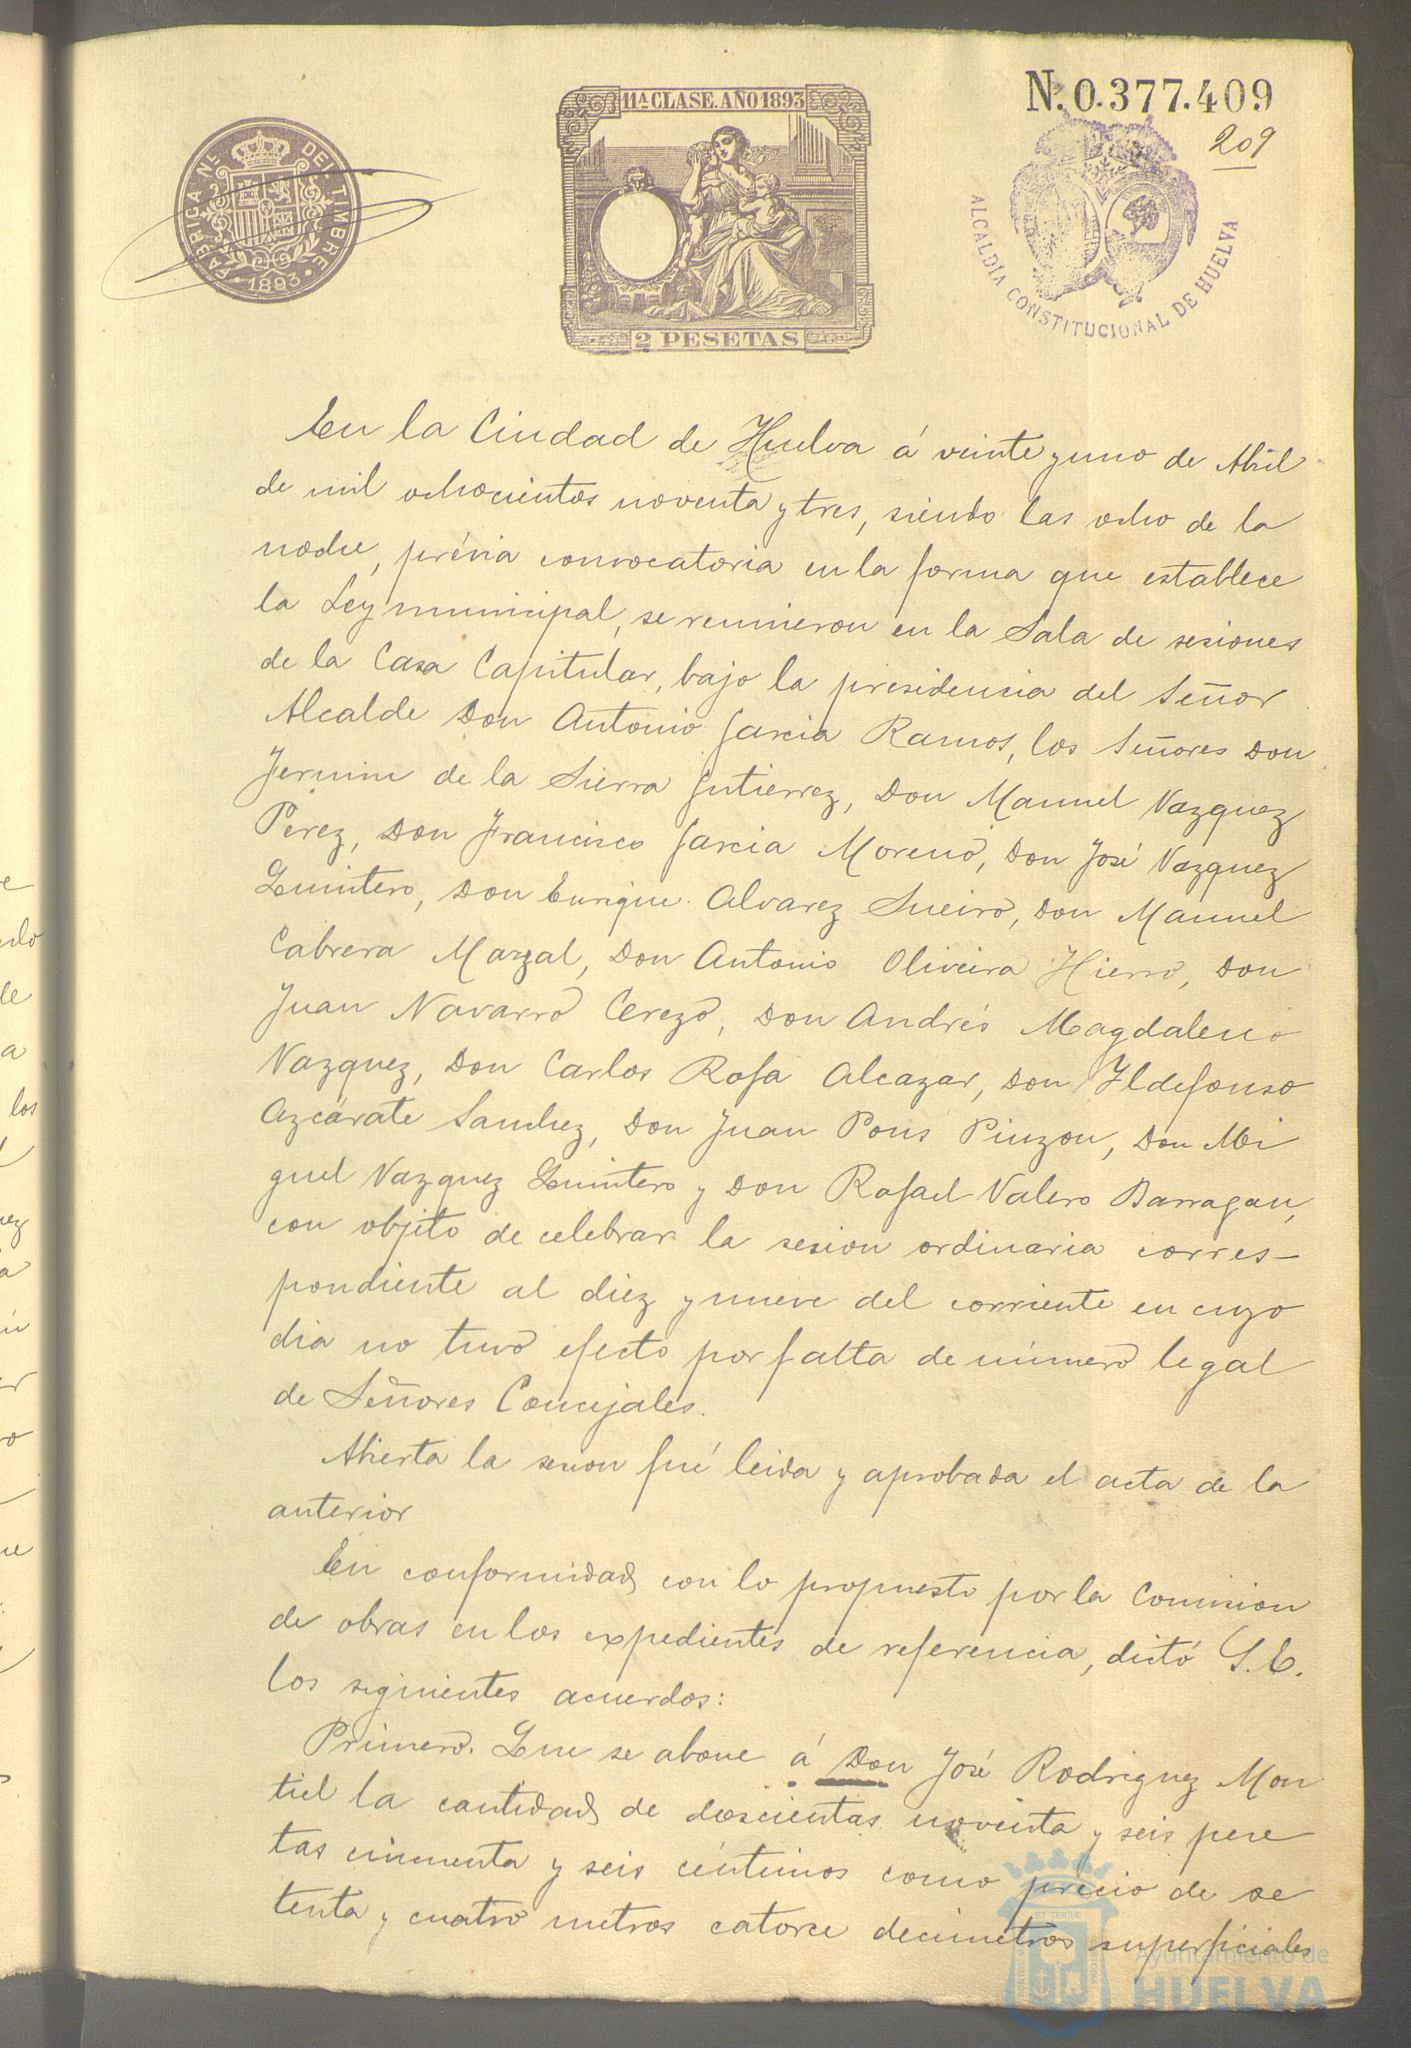 11ª CLASE. AÑO 1893
N. 0.377.409
209
FABRICA NL. DEL TIMBRE
1893
2 PESETAS
ALCALDÍA CONSTITUCIONAL DE HUELVA
En la Ciudad de Huelva á veinte y uno de Abril
de mil ochocientos noventa y tres, siendo las ocho de la
noche, prévia convocatoria en la forma que establece
la Ley municipal, se reunieron en la Sala de sesiones
de la Casa Capitular, bajo la presidencia del Señor
Alcalde Don Antonio Garcia Ramos, los Señores Don
Fermin de la Sierra Gutierrez, Don Manuel Vazquez
Perez, Don Francisco Garcia Moreno, Don José Vazquez
Quintero, Don Enrique Alvarez Sueiro, Don Manuel
Cabrera Mazal, Don Antonio Oliveira Hierro, Don
Juan Navarro Cerezo, Don Andrés Magdaleno
Vazquez, Don Carlos Rofa Alcazar, Don Ildefonso
Azcárate Sanchez, Don Juan Pons Pinzon, Don Mi
guel Vazquez Quintero y Don Rafael Valero Barragan,
con objeto de celebrar la sesion ordinaria corres-
pondiente al diez y nueve del corriente en cuyo
dia no tuvo efecto por falta de número legal
de Señores Concejales.
Abierta la sesion fué leida y aprobada el acta de la
anterior
En conformidad con lo propuesto por la Comision
de obras en los expedientes de referencia, dictó S.E.
los siguientes acuerdos:
Primero. Que se abone á Don José Rodriguez Mon
tiel la cantidad de doscientas noventa y seis pese
tas cincuenta y seis céntimos como precio de se
tenta y cuatro metros catorce decimetros superficiales
Ayuntamiento de
HUELVA